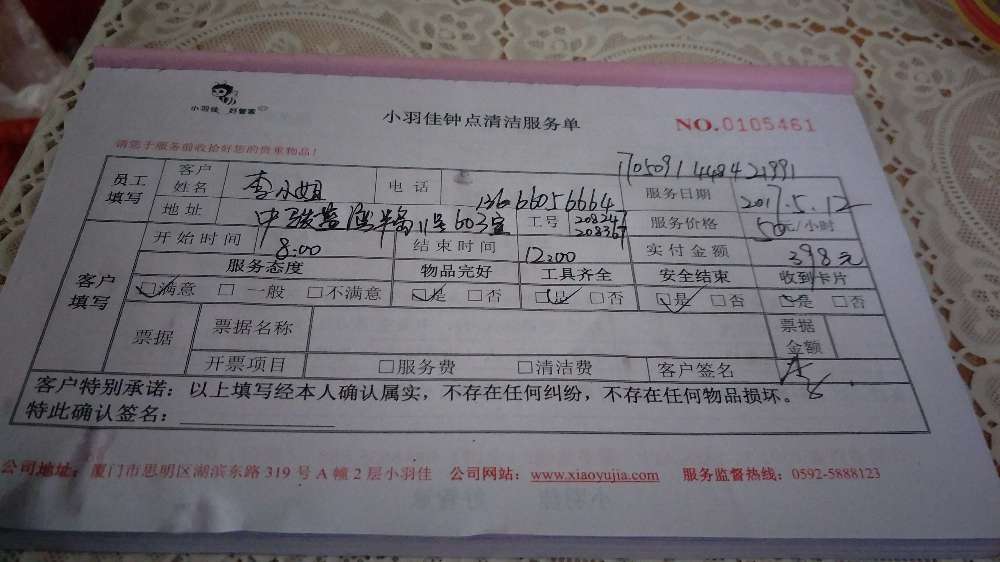 小羽佳 好管家
小羽佳钟点清洁服务单
NO.0105461
请您于服务前收拾好您的贵重物品!
1705091448421991
员工填写 客户姓名 李小姐 电话 13666056664 服务日期 2017.5.12
地址 11号603室 工号 208247 208367 服务价格 50元/小时
客户填写 开始时间 8:00 结束时间 12:00 实付金额 398元
服务态度 物品完好 工具齐全 安全结束 收到卡片
☑满意 □一般 □不满意 ☑是 □否 ☑是 □否 ☑是 □否 ☑是 □否
票据 票据名称 票据金额
开票项目 □服务费 □清洁费 客户签名
客户特别承诺：以上填写经本人确认属实，不存在任何纠纷，不存在任何物品损坏。
特此确认签名：
公司地址：厦门市思明区湖滨东路 319 号 A 幢 2 层小羽佳 公司网站：www.xiaoyujia.com 服务监督热线：0592-5888123